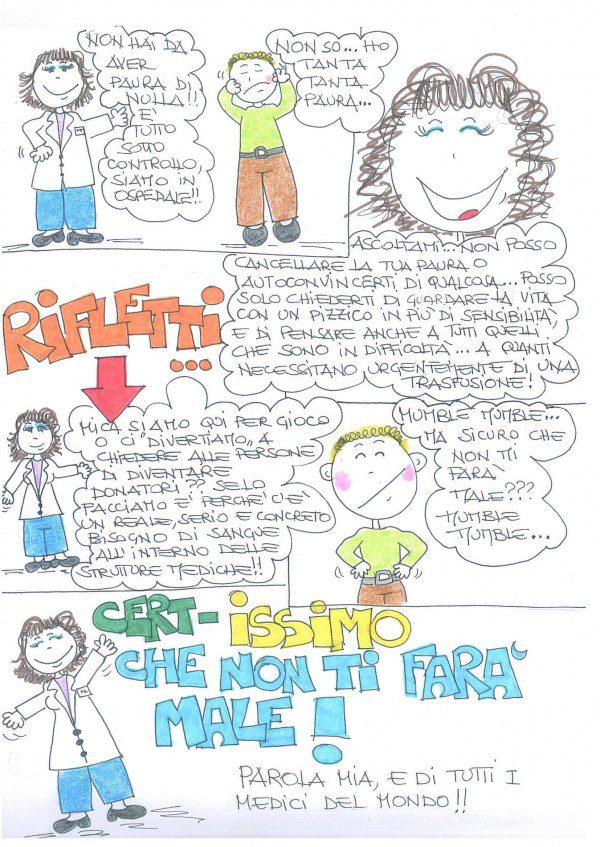 NON HAI DA
AVER
PAURA DI
NULLA!!
E'
TUTTO
SOTTO
CONTROLLO,
SIAMO IN
OSPEDALE!!
NON SO... HO
TANTA
TANTA
PAURA...
ASCOLTAMI... NON POSSO
CANCELLARE LA TUA PAURA O
AUTOCONVINCERTI DI QUALCOSA... POSSO
SOLO CHIEDERTI DI GUARDARE LA VITA
CON UN PIZZICO IN PIÙ DI SENSIBILITÀ,
E DI PENSARE ANCHE A TUTTI QUELLI
CHE SONO IN DIFFICOLTÀ... A QUANTI
NECESSITANO URGENTEMENTE DI UNA
TRASFUSIONE!
RIFLETTI
...
MICA SIAMO QUI PER GIOCO
O CI "DIVERTIAMO" A
CHIEDERE ALLE PERSONE
DI DIVENTARE
DONATORI?? SE LO
FACCIAMO E' PERCHE' C'E'
UN REALE, SERIO E CONCRETO
BISOGNO DI SANGUE
ALL'INTERNO DELLE
STRUTTURE MEDICHE!!
MUMBLE MUMBLE...
MA SICURO CHE
NON TI
FARÀ
MALE???
MUMBLE
MUMBLE...
CERT-ISSIMO
CHE NON TI FARA'
MALE!
PAROLA MIA, E DI TUTTI I
MEDICI DEL MONDO!!